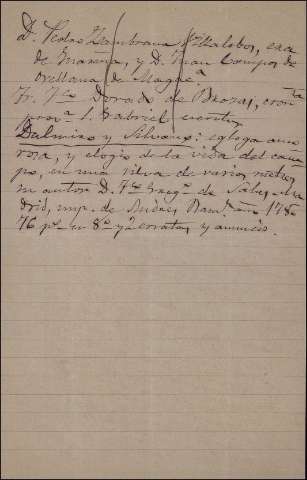 D. Nicolas Zambrana Villalobos, exa
de Guareña, y D. Juan Campos de
Orellana de Magacª
Fr. Fco Dorado de Brozas, cronta
provª S. Gabriel
Dalmiro y Silvano: egloga amo
rosa, y elogio de la vida del cam
po, en una silva de varios metros
su autor D. Fco Gregº de Salas, Ma
drid, imp. de Andres Ramz año 1780
76 pp. en 8º y 2 erratas y anuncio.